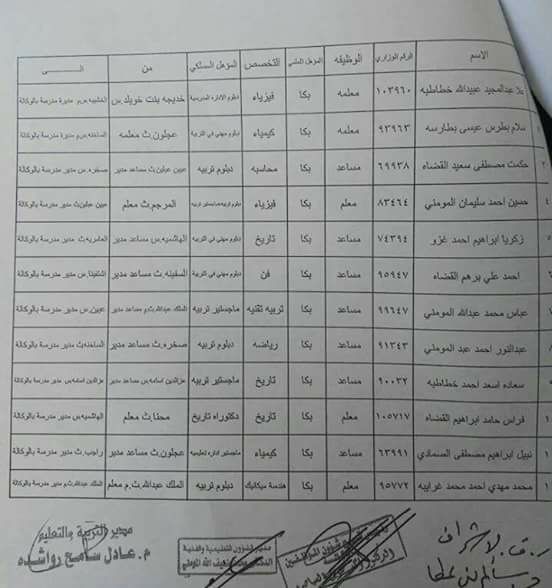 الاسم الرقم الوزاري الوظيفه المؤهل العلمي التخصص المؤهل المسلكي من الـــى
علا عبدالمجيد عبيدالله خطاطبه ١٠٣٩٦٠ معلمه بكا فيزياء دبلوم الادارة المدرسية خديجه بنت خويلد س مديرة مدرسة بالوكالة
سلام بطرس عيسى بطارسه ٩٣٩٦٣ معلمه بكا كيمياء دبلوم مهني في التربية عجلون ث معلمه الساخنه س م مديرة مدرسة بالوكالة
٢ حكمت مصطفى سعيد القضاه ٦٩٩٣٨ مساعد بكا محاسبه دبلوم تربيه عبين عبلين ث مساعد مدير صخره س مدير مدرسة بالوكالة
٤ حسين احمد سليمان المومني ٨٣٤٦٤ معلم بكا فيزياء المرجم ث معلم عبين عبلين ث مدير مدرسة بالوكالة
٥ زكريا ابراهيم احمد غزو ٧٤٣٩٤ مساعد بكا تاريخ دبلوم مهني في التربية الهاشميه س مساعد مدير العامريه ث مدير مدرسة بالوكالة
٦ احمد علي برهم القضاه ٩٥٩٤٧ مساعد بكا فن دبلوم مهني في التربية السفينه ث مساعد مدير اشتفينا س مدير مدرسة بالوكالة
عباس محمد عبدالله المومني ٩٩٦٤٧ مساعد بكا تربيه تقنيه ماجستير تربيه الملك عبدالله ث م مساعد مدير عبين س مدير مدرسة بالوكالة
عبدالنور احمد عبد المومني ٩١٣٤٣ مساعد بكا رياضه دبلوم تربيه صخره ث مساعد مدير الساخنه ث مدير مدرسة بالوكالة
سعاده اسعد احمد خطاطبه ٩٠٠٣٢ مساعد بكا تاريخ ماجستير تربيه عزالدين اسامه س مساعد مدير عزالدين اسامه س مدير مدرسة بالوكالة
١ فراس حامد ابراهيم القضاه ١٠٥٧١٧ معلم بكا تاريخ دكتوراه تاريخ محنا ث معلم الهاشميه س مدير مدرسة بالوكالة
١ نبيل ابراهيم مصطفى الصمادي ٦٣٩٩١ مساعد بكا كيمياء ماجستير اداره تعليميه عجلون ث مساعد مدير راجب ث مدير مدرسة بالوكالة
١ محمد مهدي احمد محمد غرايبه ٩٥٧٧٢ معلم بكا هندسة ميكانيك دبلوم تربيه الملك عبدالله ث م معلم الملك عبدالله ث م مدير مدرسة بالوكالة
مدير التربية والتعليم
م.عادل سامح رواشده
مدير الشؤون التعليمية والفنية